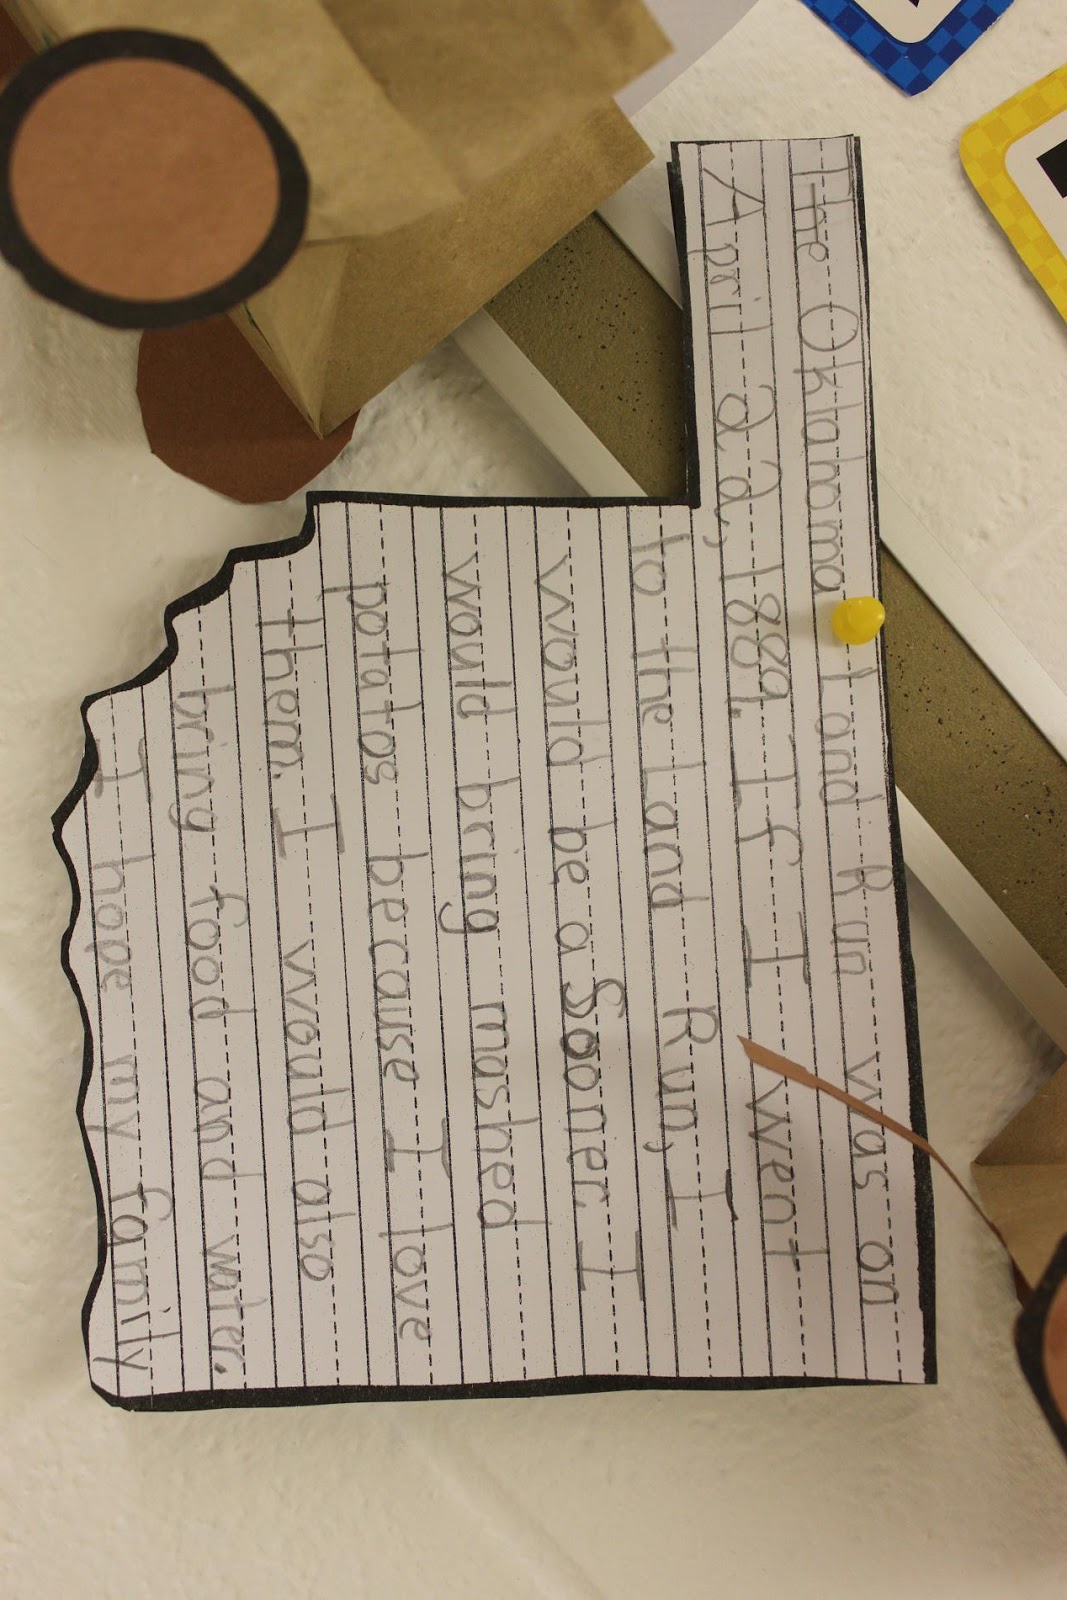 The Oklahoma Land Run was on
April 22, 1889. If I went
to the Land Run, I
would be a Sooner. I
would bring mashed
potatos because I love
them. I would also
bring food and water.
I hope my family